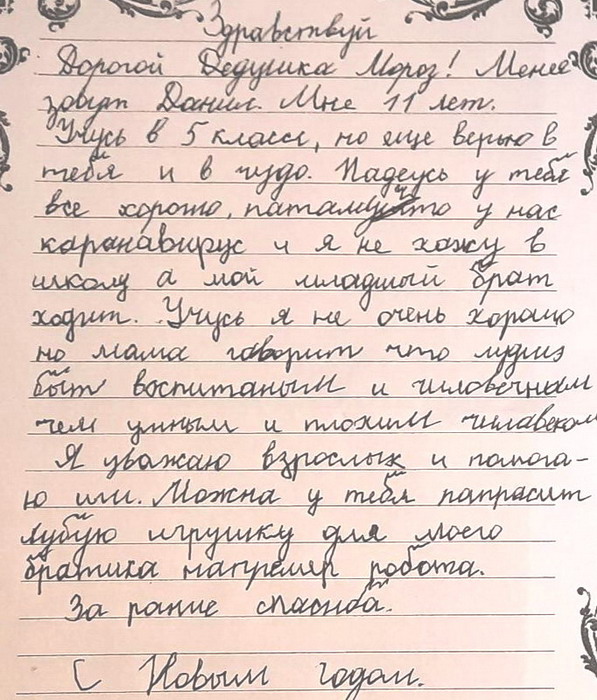 Здравствуй
Дорогой Дедушка Мороз! Менее
зовут Данил. Мне 11 лет.
Учусь в 5 класе, но еще верью в
тебя и в чудо. Надеусь у тебя
все хорошо, патамучто у нас
каранавирус и я не хажу в
школу а мой младшый брат
ходит. Учусь я не очень хорашо
но мама говорит что лудше
быт воспитаным и чиловечным
чем умным и плохим чилавеком
Я уважаю взрослых и помога-
ю или. Можна у тебя папрасит
лубую игрушку для моего
братика напремер робота.
За рание спасиба.
С Новым годом.